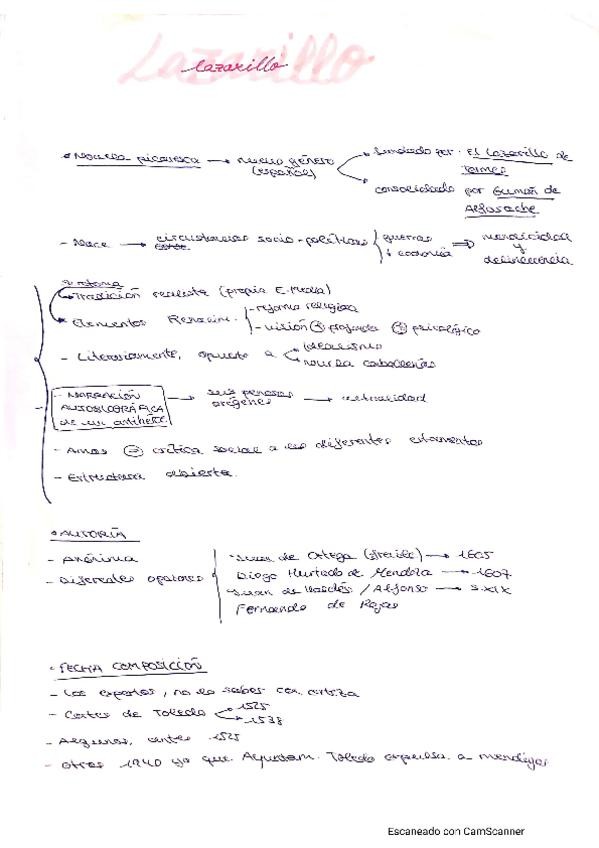 Lazarillo
Lazarillo
• Novela picaresca → nuevo género (español)
fundado por El Lazarillo de Tormes
consolidado por Guzmán de Alfarache
- Nace → circustancias socio-políticas
guerras
↓ economía
⇒ mendicidad y delincuencia
→ Tradición realista (propia E.Media)
→ Elementos Renacim.
- reforma religiosa
- visión + profunda + psicológico
- Literariamente, opuesto a
idealismo
novela caballerías
- NARRACIÓN AUTOBIOGRÁFICA de un antihéroe
→ seis penosos orígenes → actualidad
- Amos = crítica social a los diferentes estamentos
- Estructura abierta.
• AUTORÍA
- Anónima
- Diferentes opciones
Juan de Ortega (fraile) → 1605
Diego Hurtado de Mendoza → 1607
Juan de Valdés / Alfonso → S.XIX
Fernando de Rojas
• FECHA COMPOSICIÓN
- Los expertos, no lo saben con certeza
- Cortes de Toledo
→ 1525
→ 1538
- Algunos, antes 1525
- Otros 1940 ya que Ayuntam. Toledo expulsa a mendigos
Escaneado con CamScanner